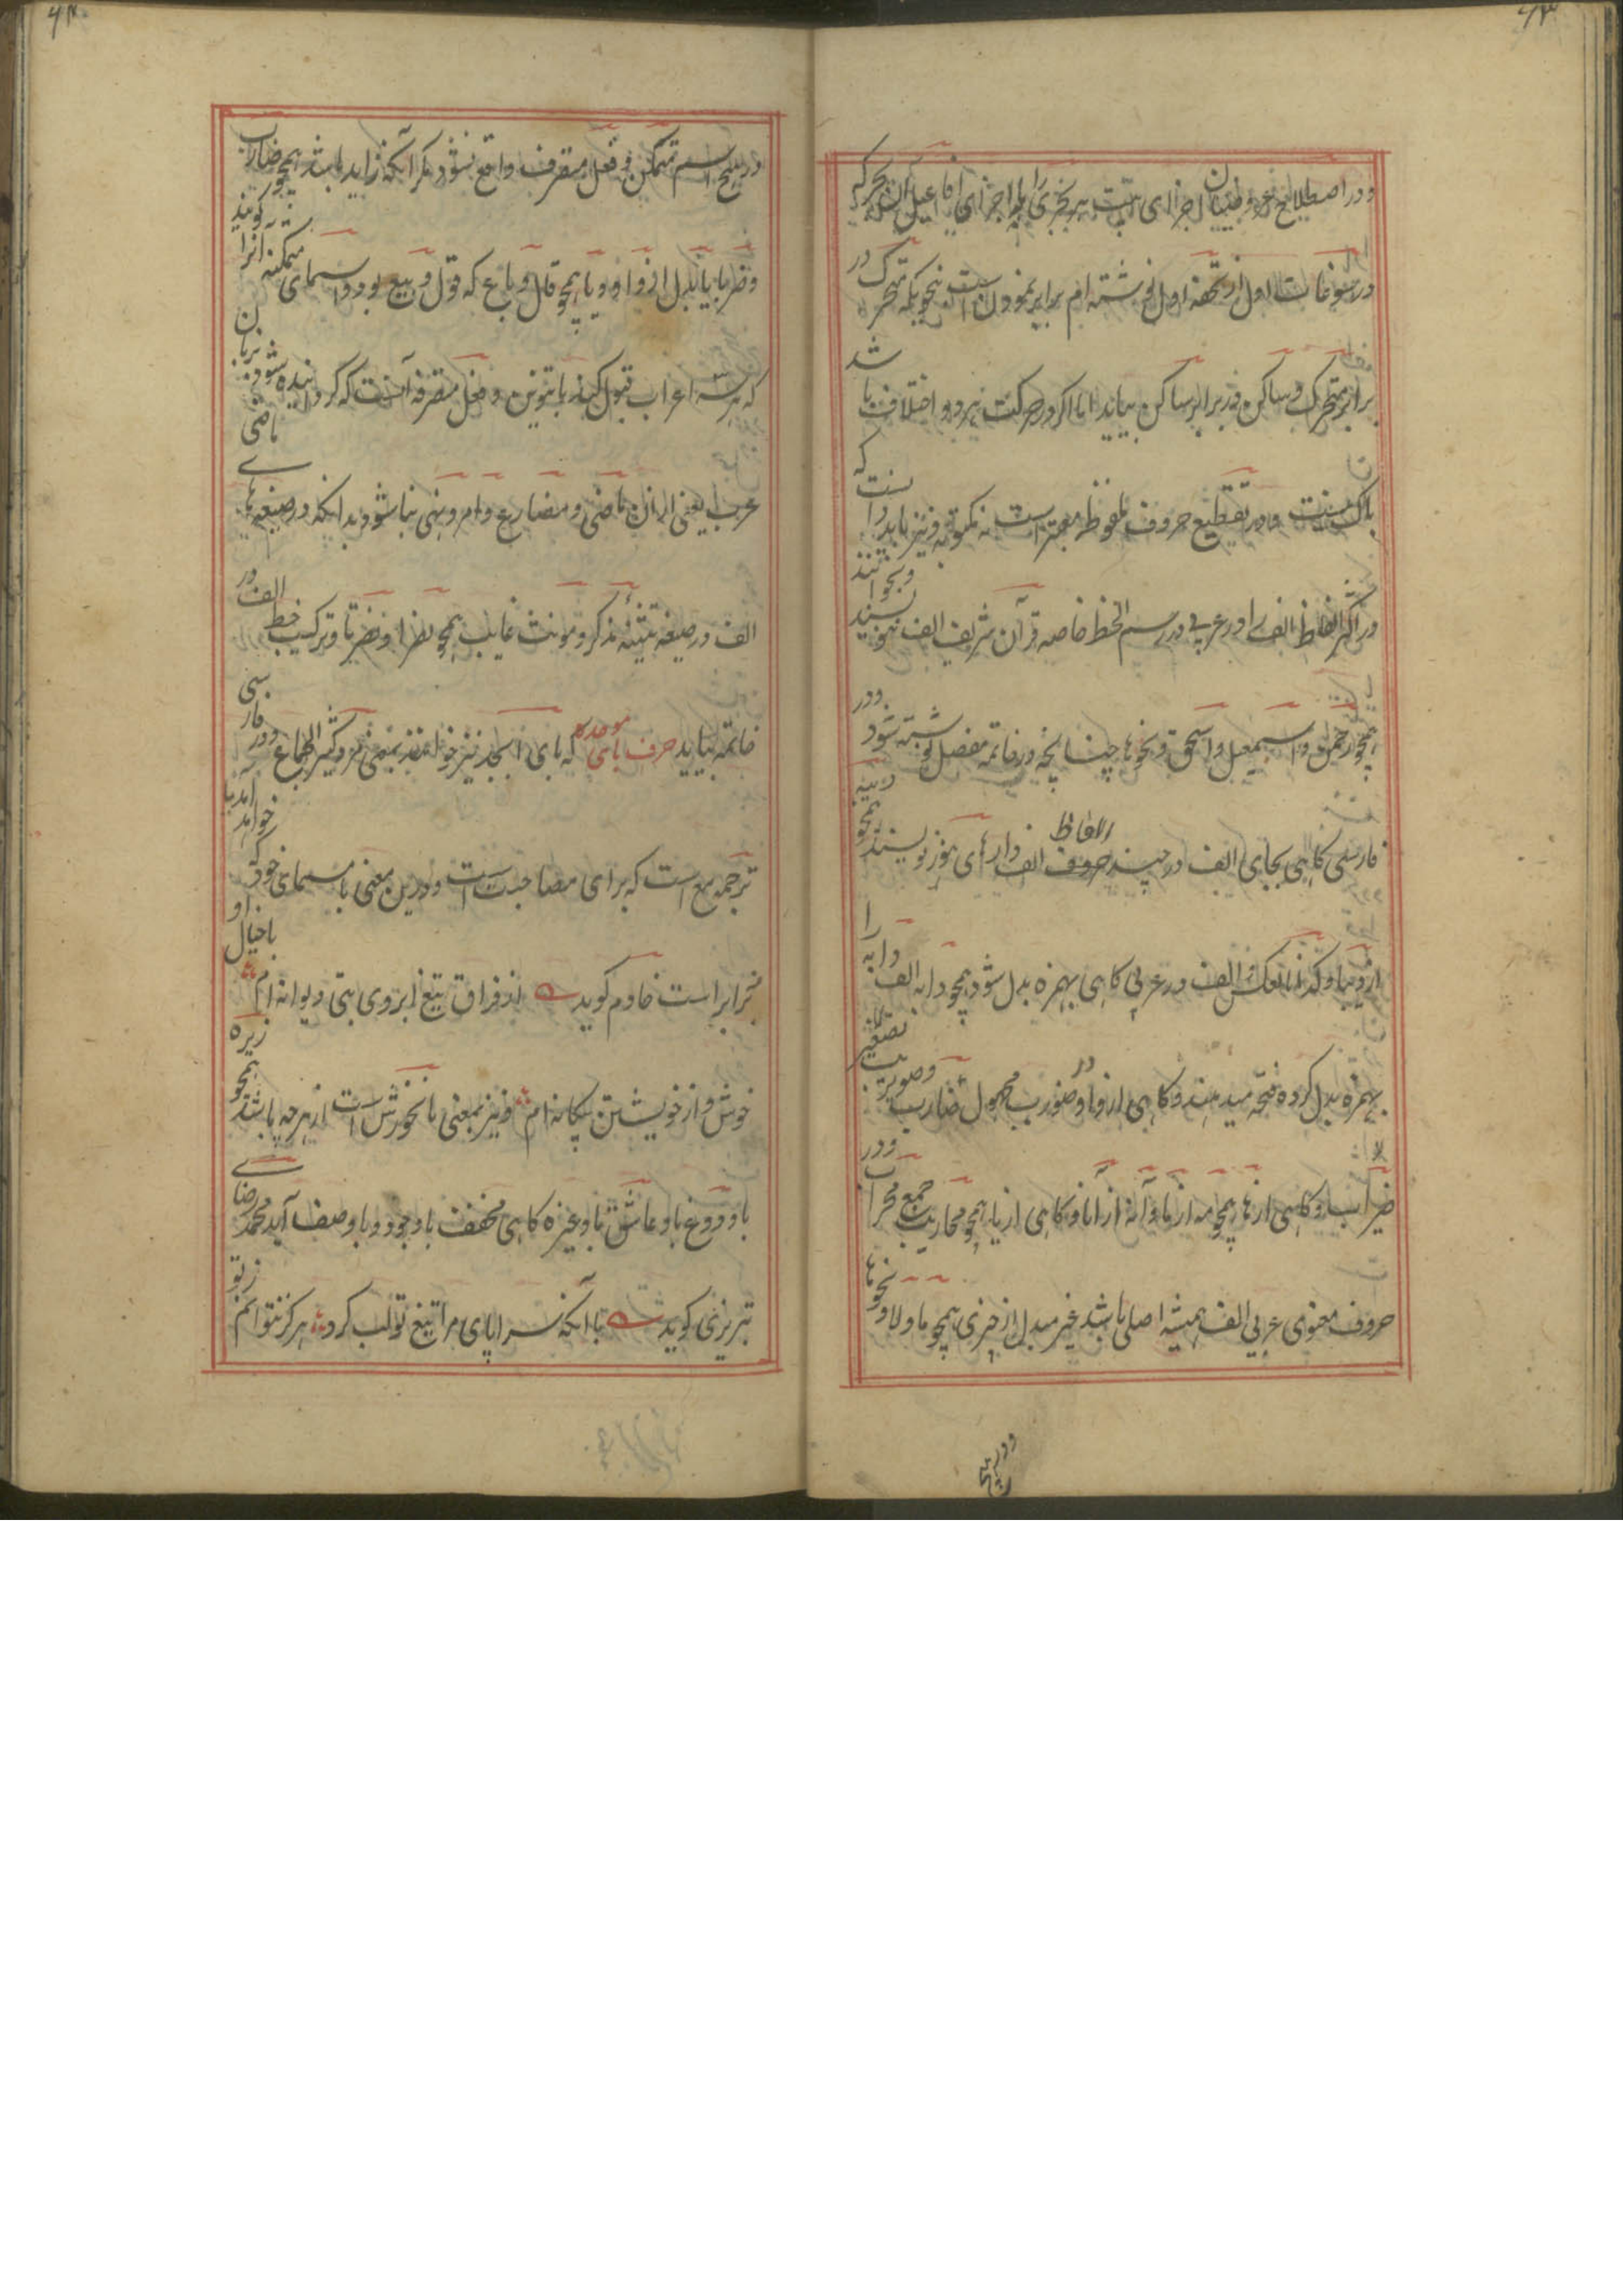 ۶۳
ودر اصطلاح عروضیان اجزای بیت بحری را با اجزای افاعیل آن بحر که
در سوغات اول از تحفه اول نوشته ام برابر نمودن است بنحویکه متحرک در
برابر متحرک و ساکن در برابر ساکن بیاید اما اگر در حرکت نیرو و اختلاف باشد
باک نیست و در تقطیع حروف ملفوظ معتبر است نه مکتوبه و نیز باید دانست که
در اکثر الفاظ الف را در عربی در رسم الخط خاصه قرآن شریف الف ننویسند و بخوانند
همچو رحمن و اسمعیل و اسحق و نحوها چنانچه در خاتمه مفصل نوشته شود ودر
فارسی گاهی بجای الف در چند حروف الفاظ الف وار های هوز نویسند همچو
ازو بها و کذا بالعکس الف در عربی گاهی بهمزه بدل شود همچو دابه الف را
بهمزه بدل کرده فتحه میدهند و گاهی از واو در صورب مجهول ضارب وصویرب تصغیر
ضراب و گاهی از ها همچو مه از ما و آنه از آنا و گاهی از یا همچو محاریب جمع محراب ودر
حروف معنوی عربی الف همیشه اصلی باشد غیر مبدل از چیزی همچو ما و لا و نحوها
ودر هیچ
۶۴
در هیچ اسم متمکن و فعل متصرف واقع نشود مگر آنکه زاید باشد همچو ضارب
و ضربا یا بدل از واو و یا همچو قال و باع که قول و بیع بود و اسمای متمکنه آنرا گویند
که هر سه اعراب قبول کند با تنوین و فعل متصرفه آنست که گردانیده شود بزبان
عرب یعنی ازان ماضی و مضارع و امر و نهی بنا شود بدانکه در صیغهای ماضی
الف در صیغه تثنیه مذکر و مونث غایب همچو نصرا و نصرتا و ترکیب خط الف در
خاتمه بیاید حرف بای موحده که بای ابجد نیز خوانند بمعنی مرد کثیر الجماع ودر فارسی
ترجمه مع است که برای مصاحبت است و درین معنی با اسمای خود خواهد آمد
برابر است خادم گوید از فراق تیغ ابروی بتی دیوانه ام با خیال او
خوش و از خویشتن بیگانه ام و نیز بمعنی نانخورش است از هر چه باشد همچو زیره
با و دوغ با و ماش با و غیره گاهی مخفف با وجود و با وصف آید محمد رضای
تبریزی گوید با آنکه سراپای مرا تیغ تو لب کرد هرگز نتوانم ز تو